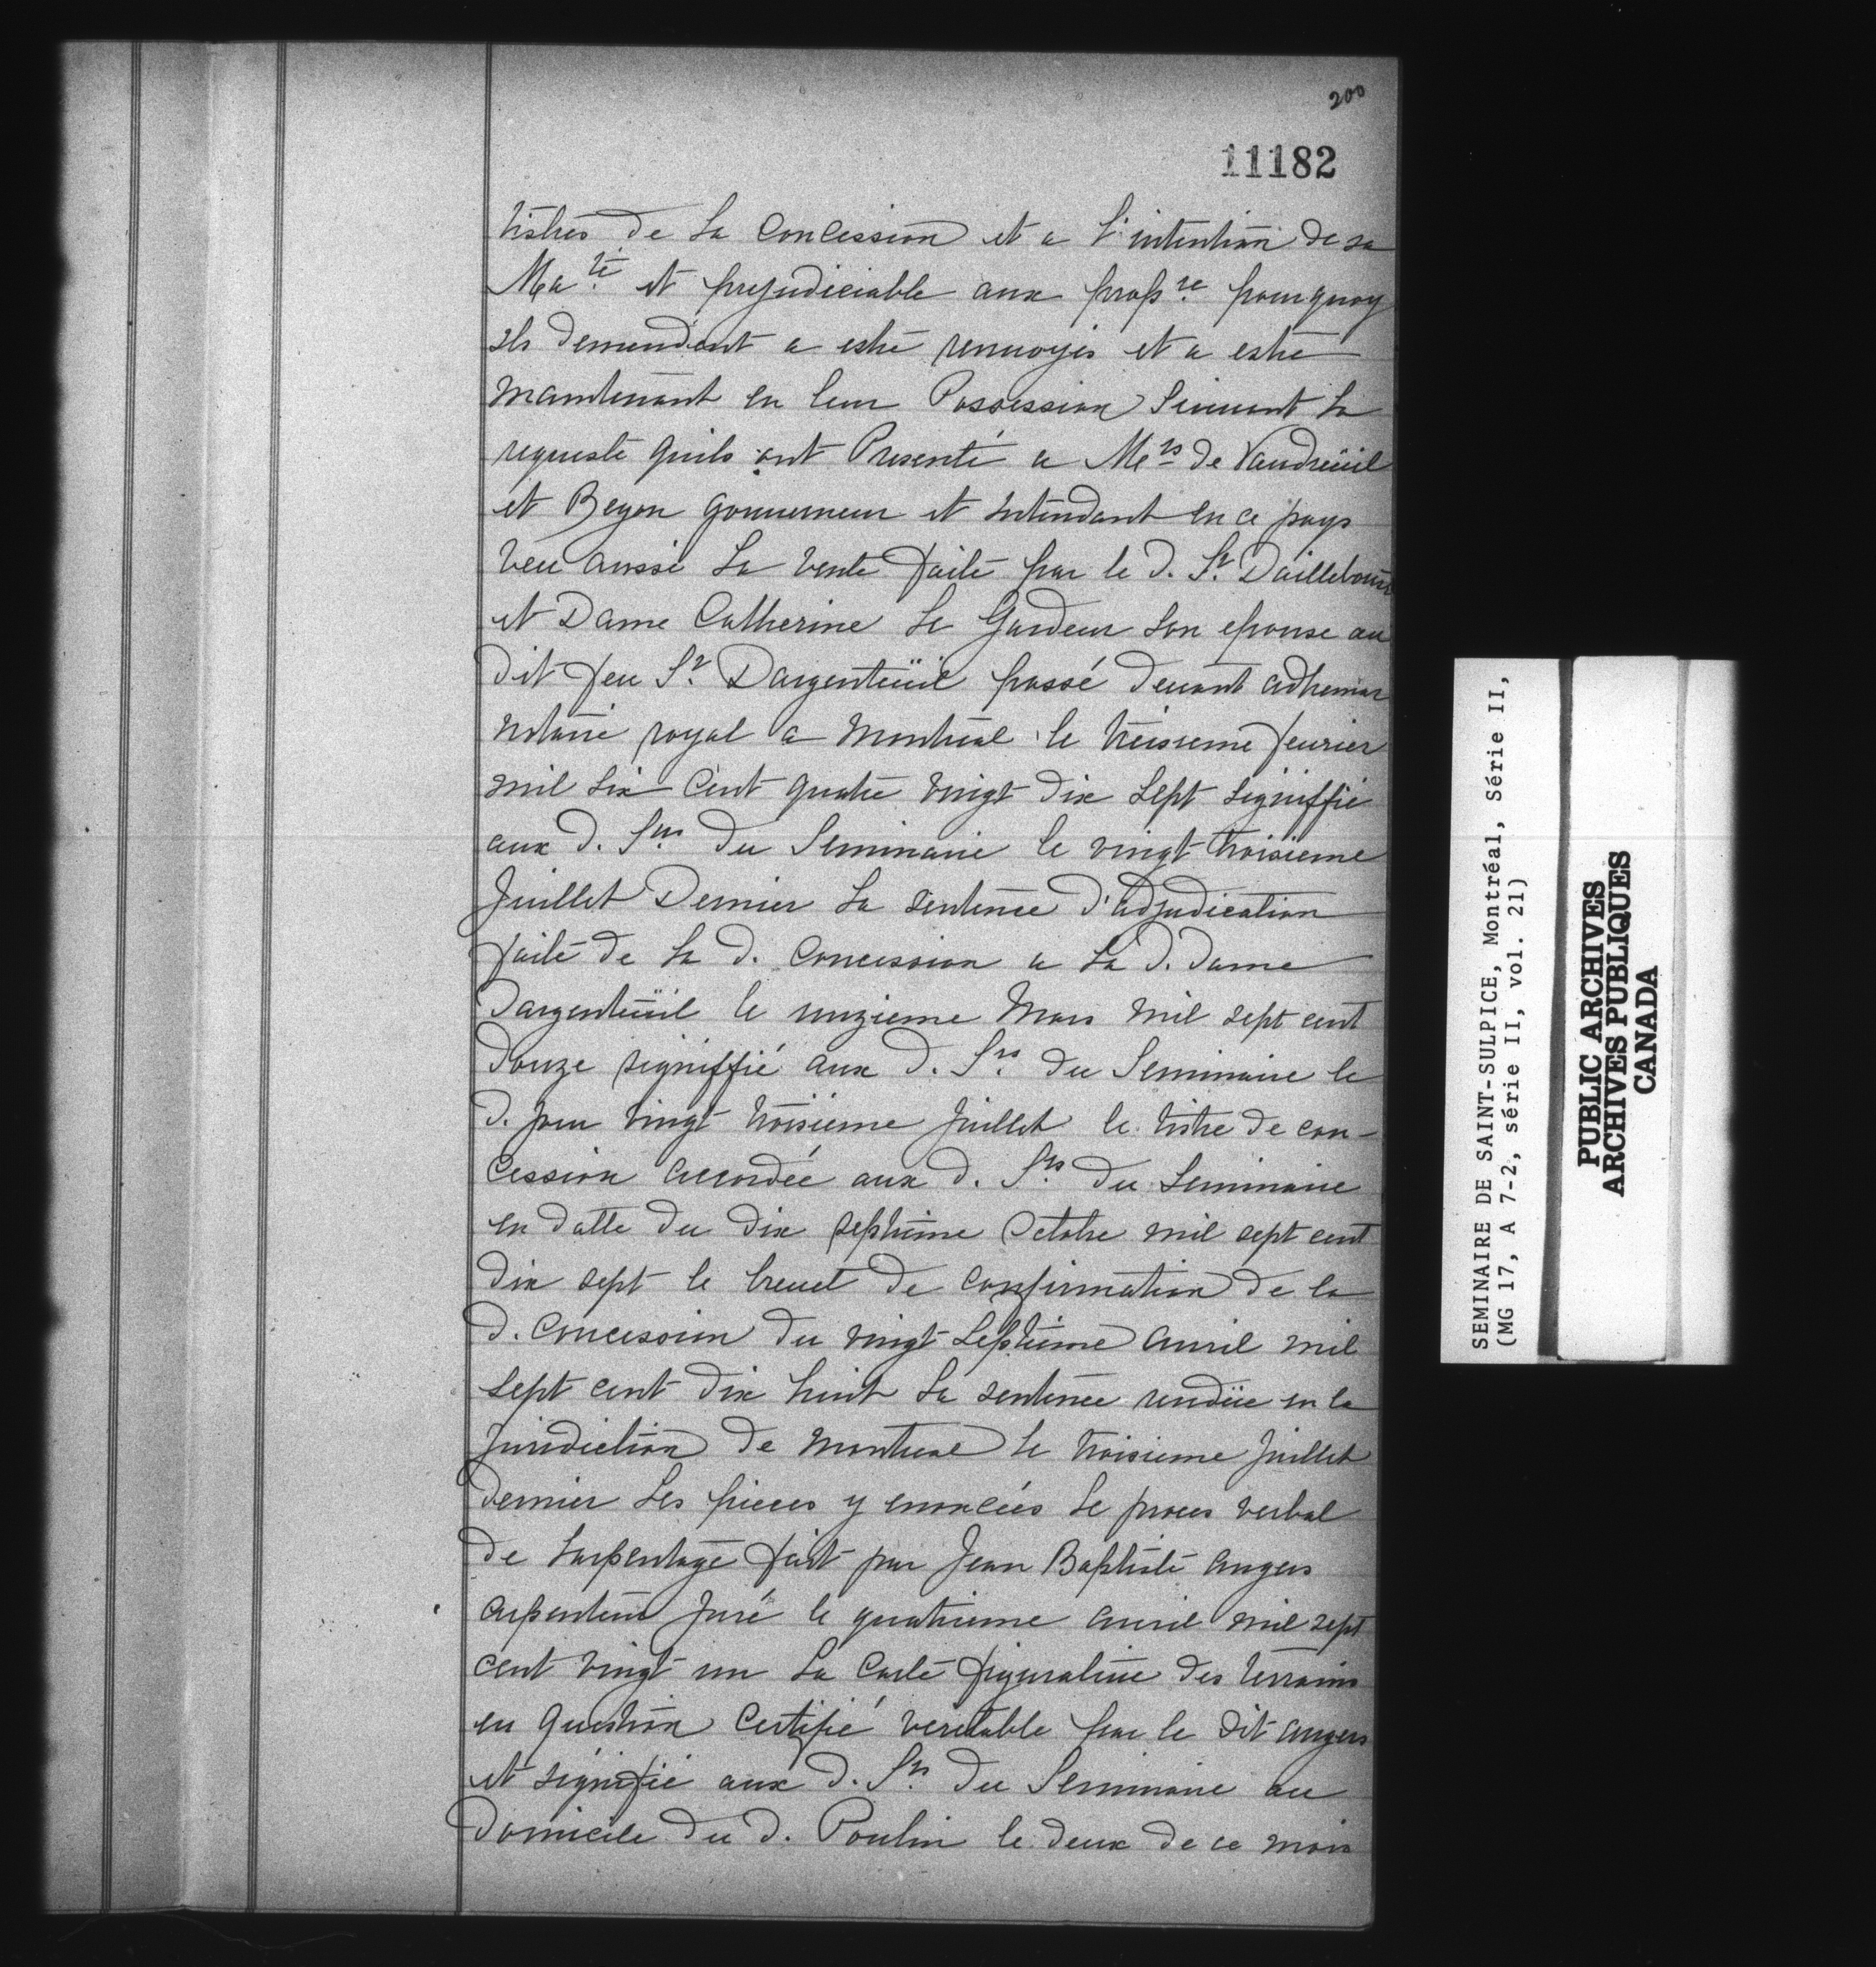 200
11182
tistres de La Concession et a L'intention de sa
Ma.té et prejudiciable aux prop.re pourquoy
ils demandent a estre renuoyés et a estre
maintenant en leur Possession Suiuant La
requeste quils ont Presenté a Me.rs de Vaudreüil
et Begon gouuerneur et intendant en ce pays
veu aussi La vente faite par le d. S.r Dailleboust
et Dame Catherine Le Gardeur son epouse au
dit feu S.r Dargenteüil passé deuant adhemar
notaire royal a Montreal le treisieme feurier
mil six Cent quatre vingt dix sept signiffié
aux d. S.rs du Seminaire le vingt troisieme
Juillet Dernier La sentence d'adjudication
faite de La d. Concession a La d. Dame
Dargenteüil le unzieme Mars mil sept cent
douze signiffié aux d. S.rs du Seminaire le
d. jour vingt troisieme Juillet le tistre de con-
cession accordée aux d. S.rs du Seminaire
en datte du dix septieme Octobre mil sept cent
dix sept le breuet de confirmation de la
d. Concession du vingt Septieme auril mil
sept cent dix huit La sentence rendüe en la
Juridiction de Montreal le troisieme Juillet
dernier Les pieces y enoncées Le proces verbal
de Larpentage fait par Jean Baptiste angers
arpenteur Juré le quatrieme auril mil sept
cent vingt un La Carte figuratiue des terrains
en question Certifié veritable par le dit angers
et signifié aux d. S.rs du Seminaire au
domicile du d. Poulin le deux de ce mois
SEMINAIRE DE SAINT-SULPICE, Montréal, Série II,
(MG 17, A 7-2, série II, vol. 21)
PUBLIC ARCHIVES
ARCHIVES PUBLIQUES
CANADA